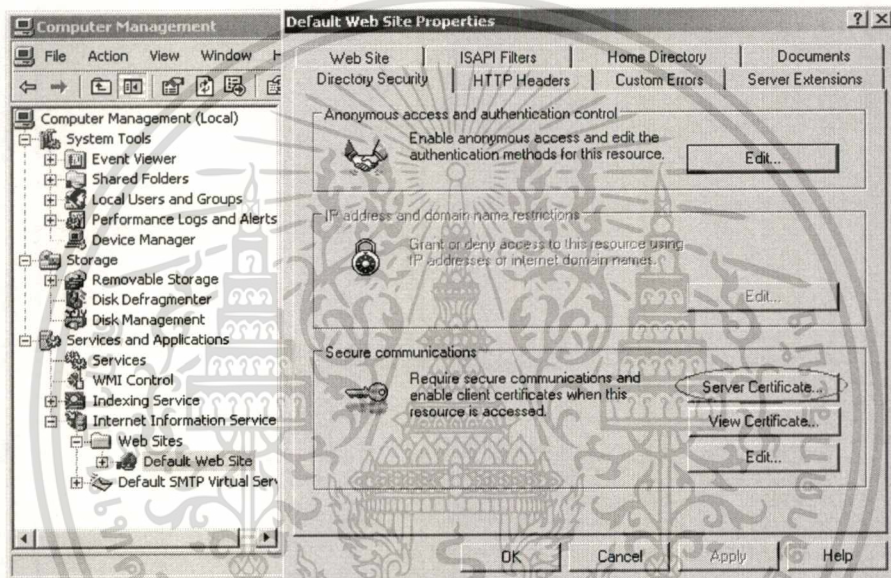 Computer Management
File Action View Window H
Computer Management (Local)
System Tools
Event Viewer
Shared Folders
Local Users and Groups
Performance Logs and Alerts
Device Manager
Storage
Removable Storage
Disk Defragmenter
Disk Management
Services and Applications
Services
WMI Control
Indexing Service
Internet Information Service
Web Sites
Default Web Site
Default SMTP Virtual Serv
Default Web Site Properties
Web Site ISAPI Filters Home Directory Documents
Directory Security HTTP Headers Custom Errors Server Extensions
Anonymous access and authentication control
Enable anonymous access and edit the
authentication methods for this resource.
Edit...
IP address and domain name restrictions
Grant or deny access to this resource using
IP addresses or internet domain names.
Edit...
Secure communications
Require secure communications and
enable client certificates when this
resource is accessed.
Server Certificate...
View Certificate...
Edit...
OK Cancel Apply Help